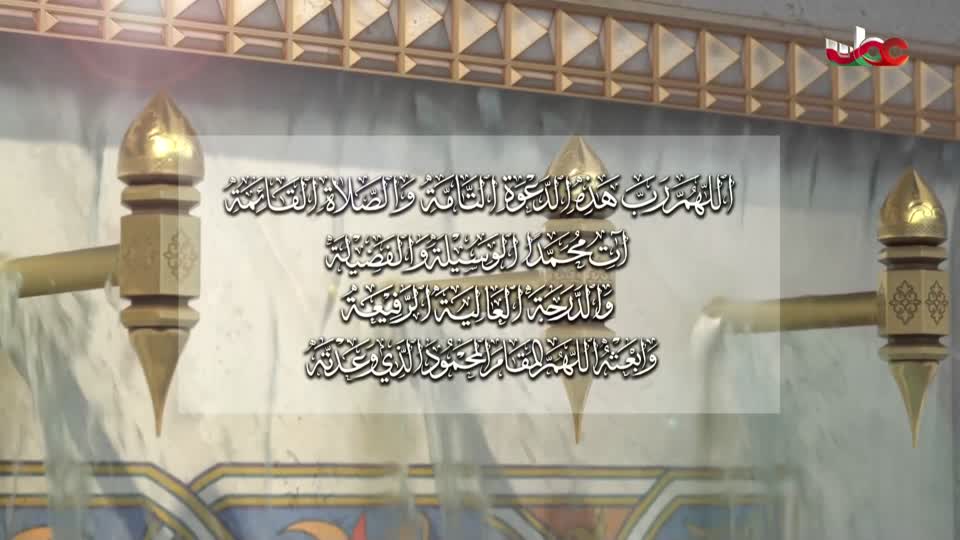 عمان
اللهم رب هذه الدعوة التامة والصلاة القائمة
آت محمدا الوسيلة والفضيلة
والدرجة العالية الرفيعة
وابعثه اللهم المقام المحمود الذي وعدته